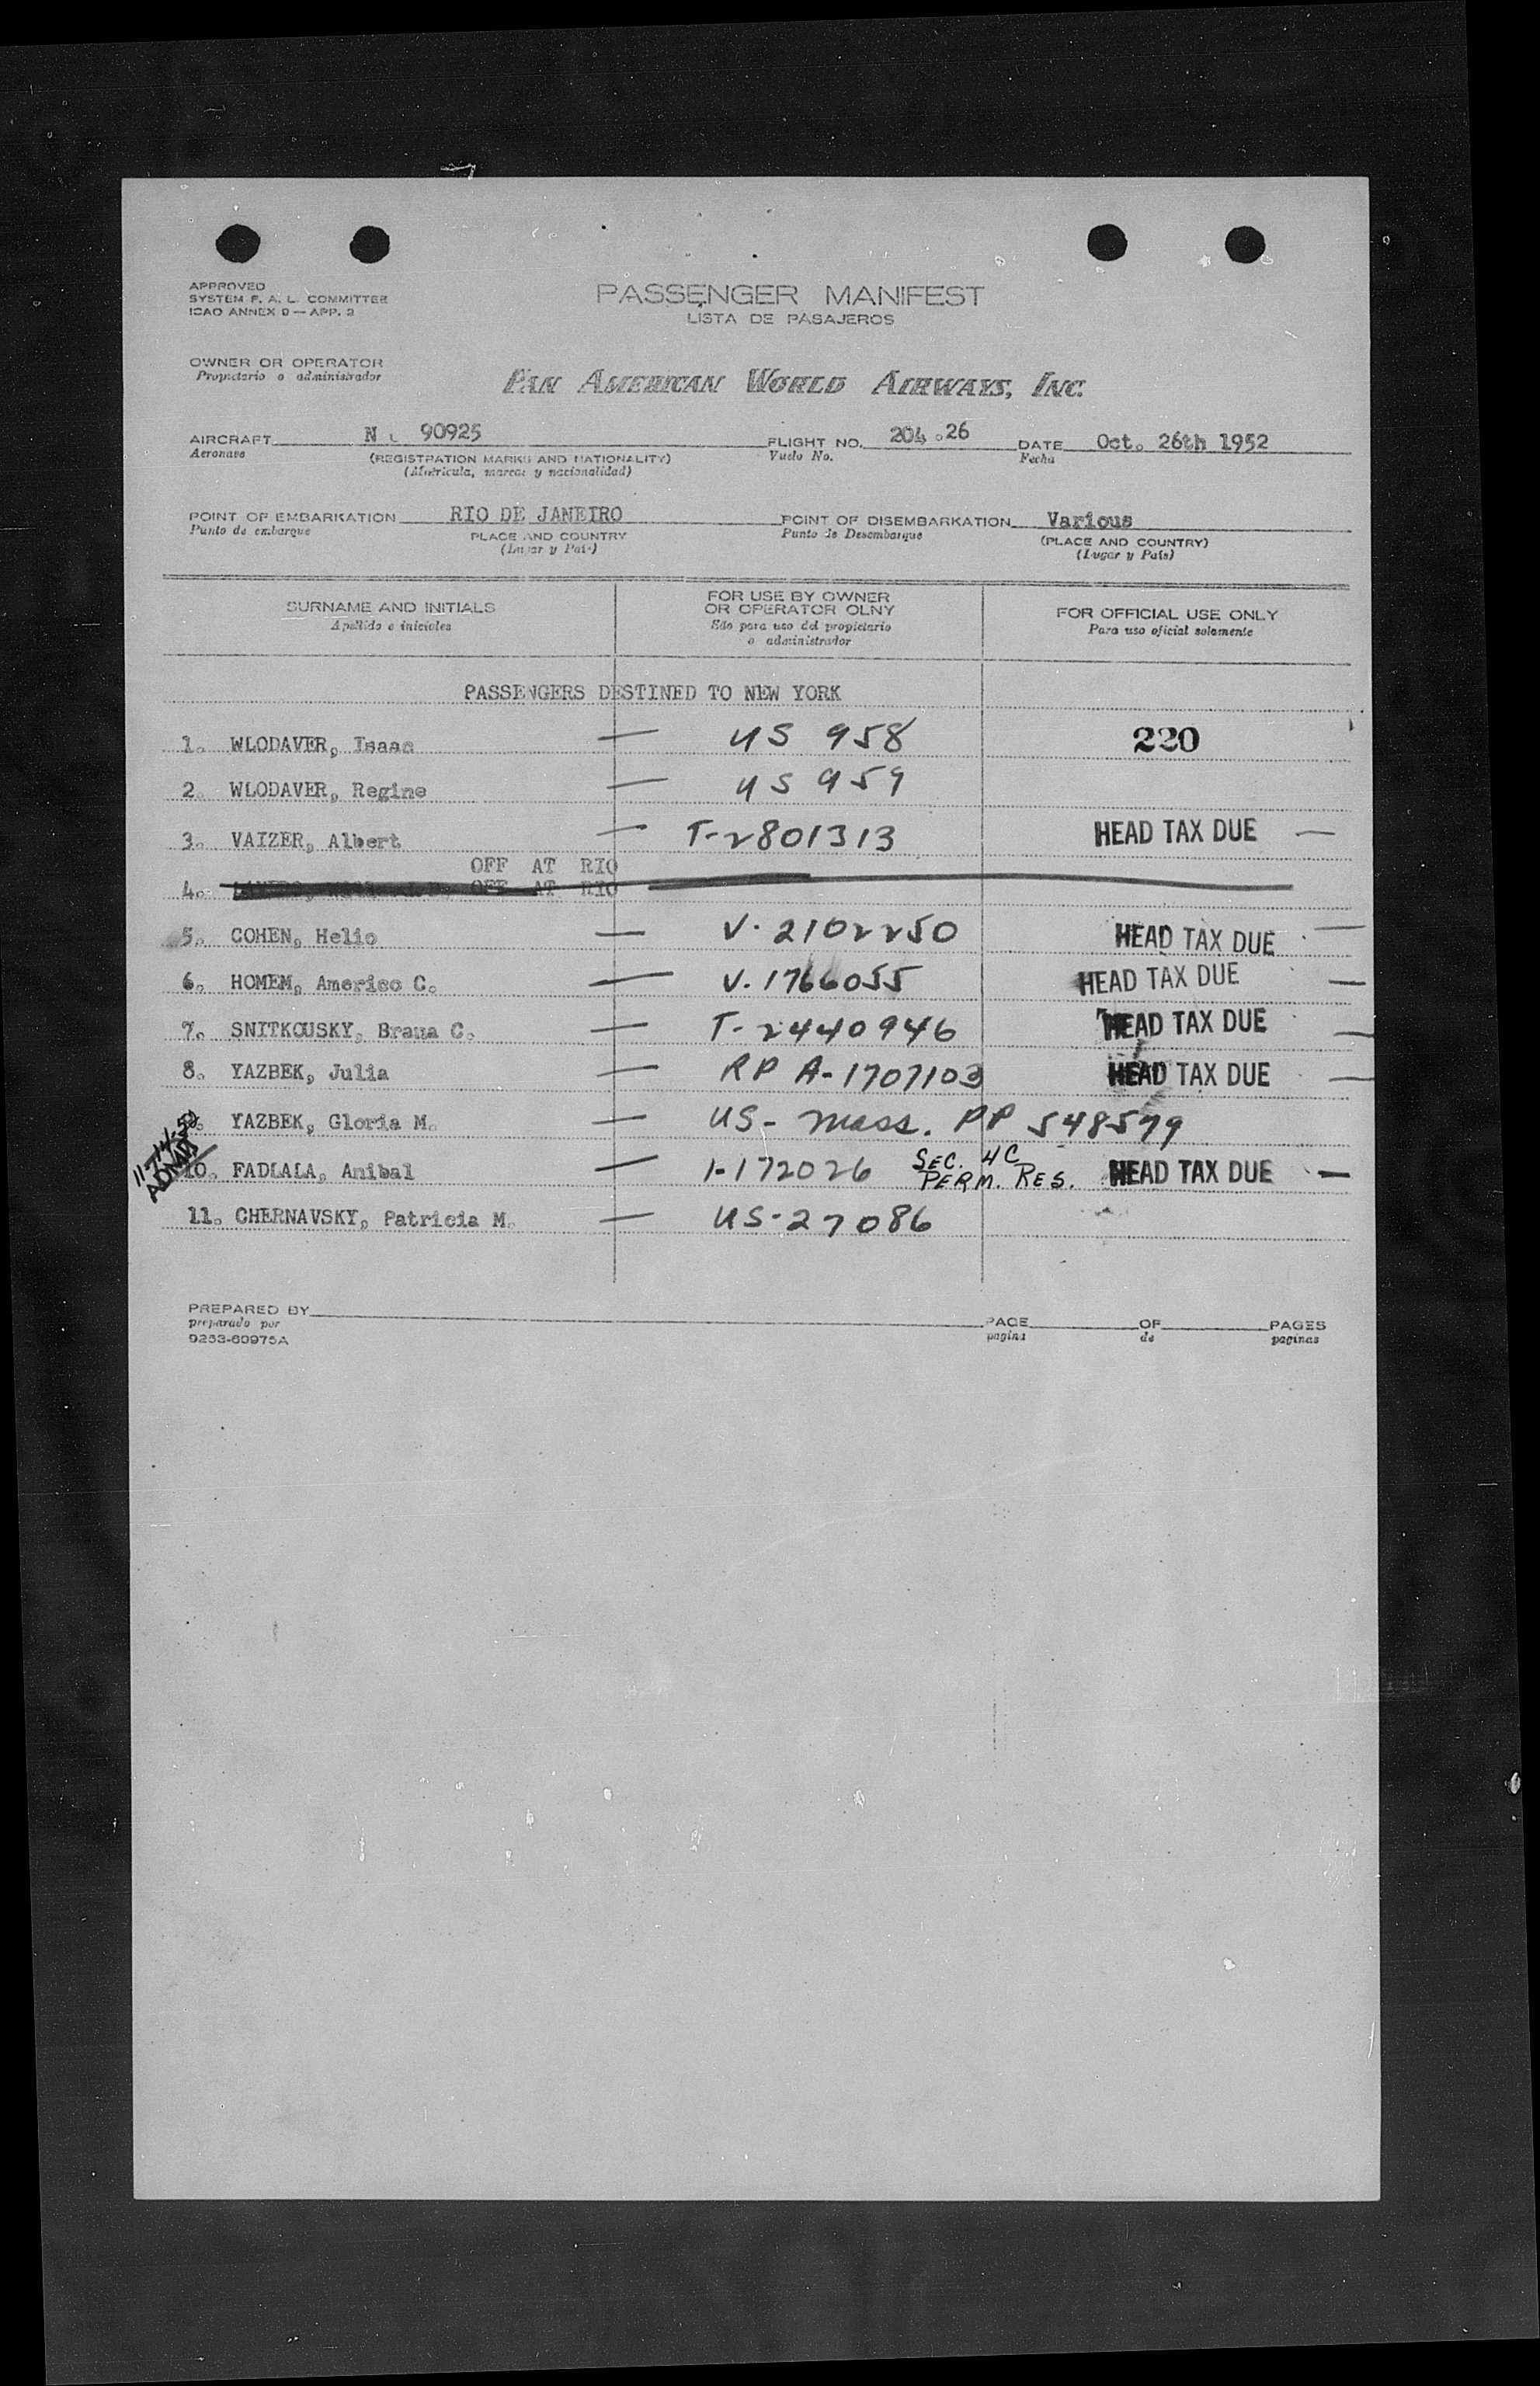 APPROVED
SYSTEM F. A. L. COMMITTEE
ICAO ANNEX 9 — APP. 3
PASSENGER MANIFEST
LISTA DE PASAJEROS
OWNER OR OPERATOR
Propietario o administrador
PAN AMERICAN WORLD AIRWAYS, INC.
AIRCRAFT N 90925 FLIGHT NO. 204.26 DATE Oct. 26th 1952
Aeronave (REGISTRATION MARKS AND NATIONALITY) Vuelo No. Fecha
(Matricula, marcas y nacionalidad)
POINT OF EMBARKATION RIO DE JANEIRO POINT OF DISEMBARKATION Various
Punto de embarque PLACE AND COUNTRY Punto de Desembarque (PLACE AND COUNTRY)
(Lugar y Pais) (Lugar y Pais)
SURNAME AND INITIALS FOR USE BY OWNER OR OPERATOR OLNY FOR OFFICIAL USE ONLY
Apellido e iniciales Sdo para uso del propietario o administrador Para uso oficial solamente
PASSENGERS DESTINED TO NEW YORK
1. WLODAVER, Isaac — US 958 220
2. WLODAVER, Regine — US 959
3. VAIZER, Albert — T-2801313 HEAD TAX DUE —
OFF AT RIO
4. OFF AT RIO
5. COHEN, Helio — V. 2102250 HEAD TAX DUE —
6. HOMEM, Americo C. — V. 1766055 HEAD TAX DUE —
7. SNITKOUSKY, Braua C. — T-2440946 HEAD TAX DUE —
8. YAZBEK, Julia — RP A-1707103 HEAD TAX DUE —
YAZBEK, Gloria M. — US- Mass. PP 548579
10. FADLALA, Anibal — I-172026 SEC. 4C PERM. RES. HEAD TAX DUE —
11. CHERNAVSKY, Patricia M. — US-27086
PREPARED BY PAGE OF PAGES
preparado por pagina de paginas
9253-60975A